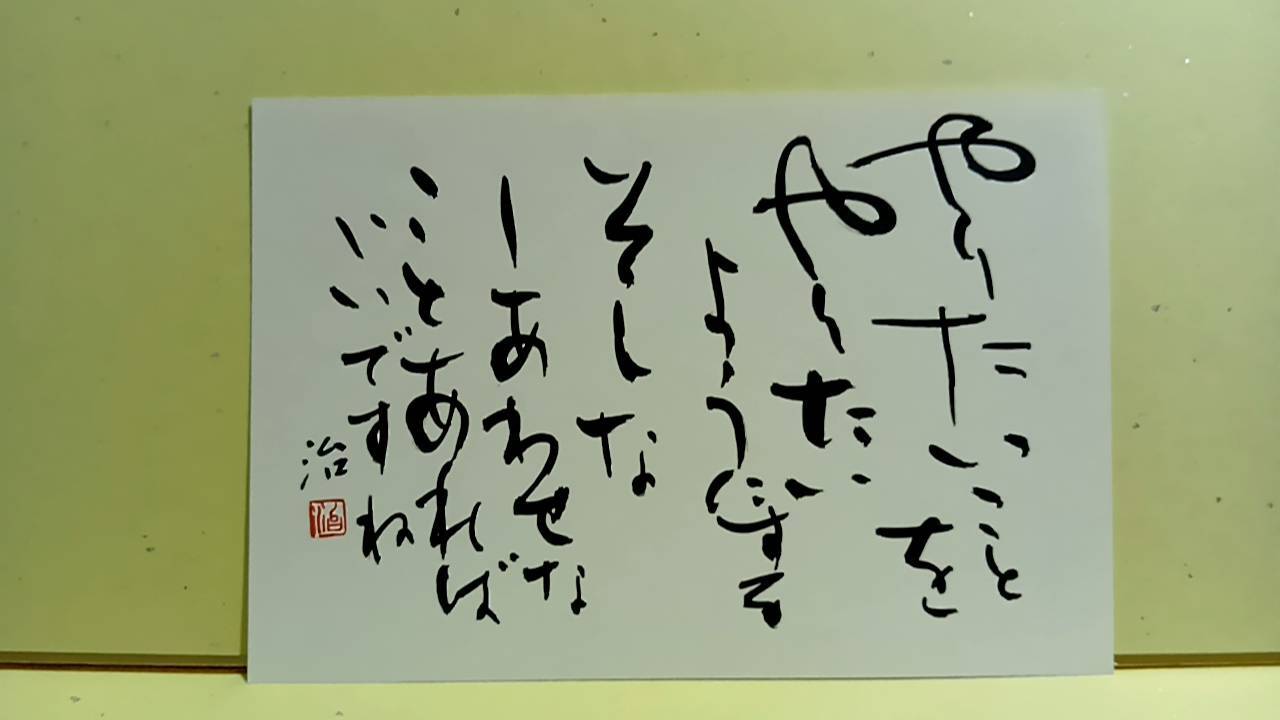 やりたいことを
やりたい
ようにする
そんな
しあわせな
ことあれば
いいですね
治